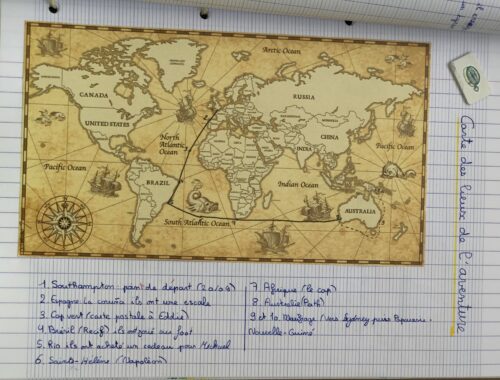 Carte des lieux de l'aventure
Arctic Ocean
GREENLAND
CANADA
RUSSIA
UNITED STATES
CHINA
INDIA
North
Atlantic
Ocean
Pacific Ocean
Pacific
Ocean
BRAZIL
Indian Ocean
AUSTRALIA
South Atlantic Ocean
1 Southampton : de départ
2 Espagne La coruña ils ont une escale
3 Cap vert (carte postale à Eddie)
4 Brésil (Recif) ils au foot
5. Rio ils ont acheté un cadeau pour Michael
6. Sainte-Hélène (Napoléon)
7. Afrique (le cap)
8. Australie
9 et 10. Naufrage (vers Sydney puis
Nouvelle-Guiné